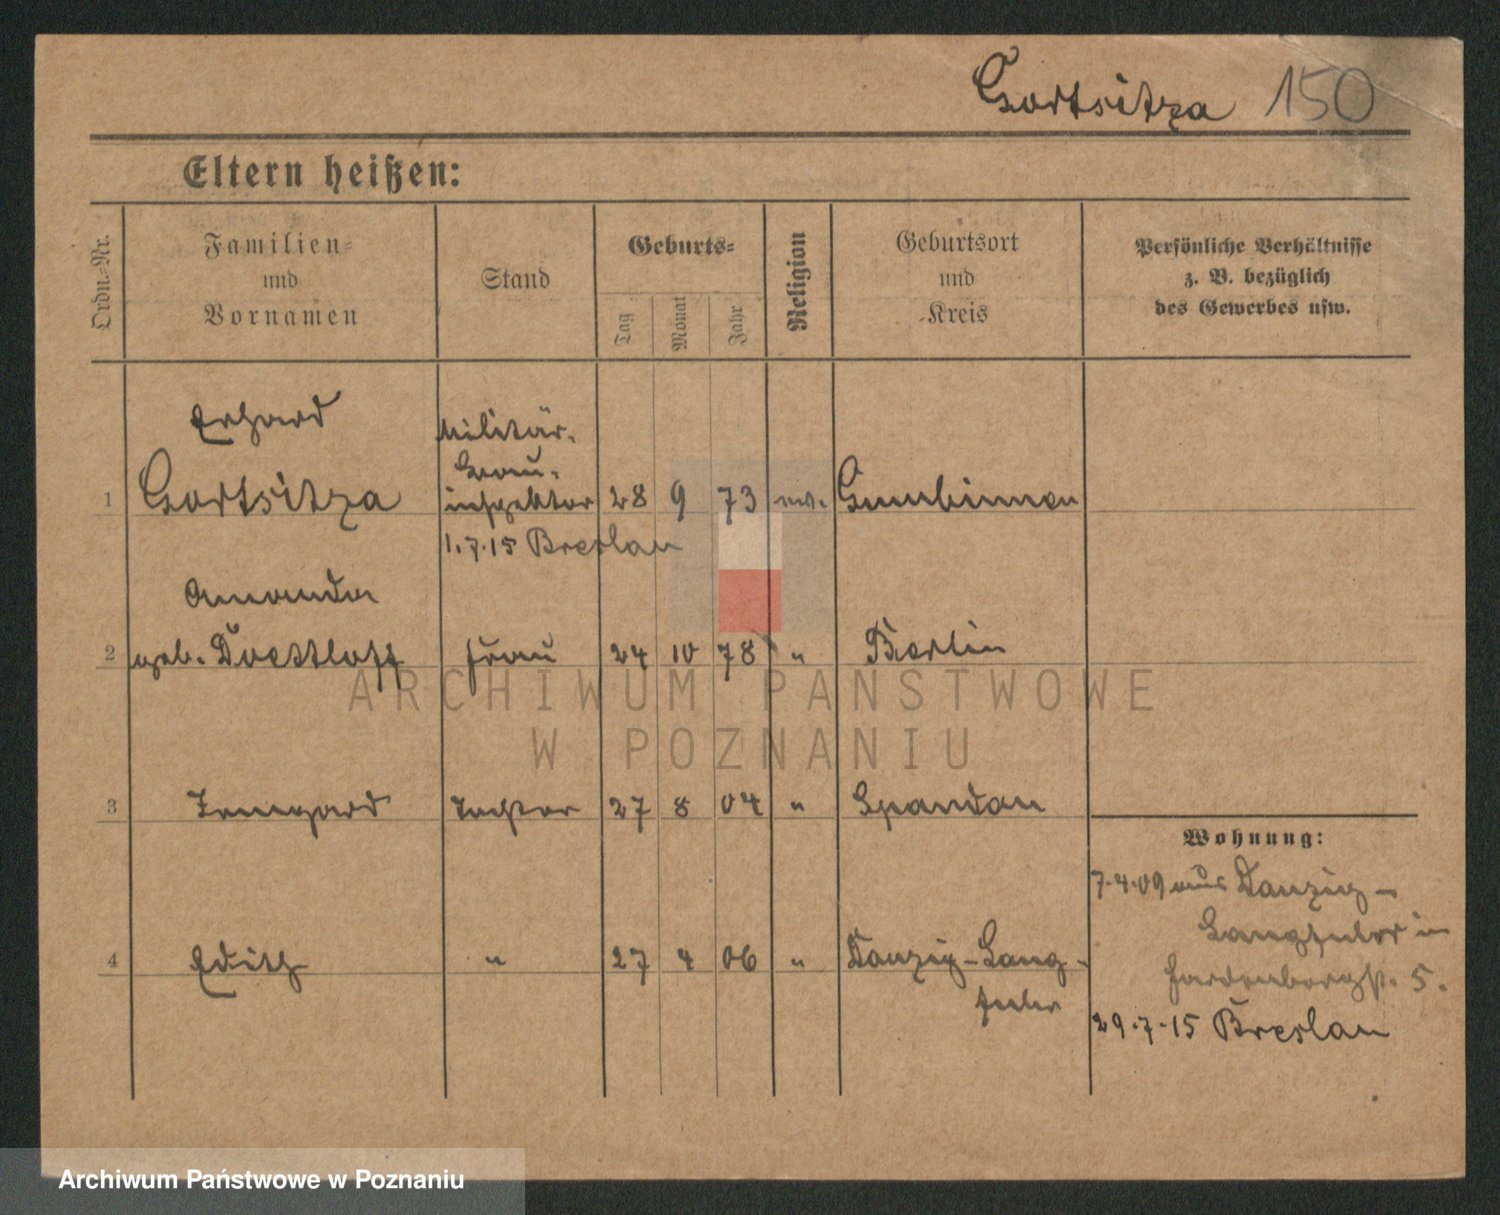 Gortsitza 150
Eltern heißen:
Ordn.-Nr.
Familien-
und
Vornamen
Stand
Geburts-
Tag
Monat
Jahr
Religion
Geburtsort
und
Kreis
Persönliche Verhältnisse
z. B. bezüglich
des Gewerbes usw.
Erhard
Militär-
bau-
1 Gortsitza inspektor 28 9 73 ev. Gumbinnen
1.7.15 Breslau
Amanda
2 geb. Frau 24 10 78 " Berlin
3 Irmgard Tochter 27 8 04 " Spandau
Wohnung:
7.4.09 aus Danzig-
Langfuhr in
4 Edith " 27 4 06 " Danzig-Lang-
fuhr
Hardenbergst. 5.
29.7.15 Breslau
ARCHIWUM PAŃSTWOWE
W POZNANIU
Archiwum Państwowe w Poznaniu